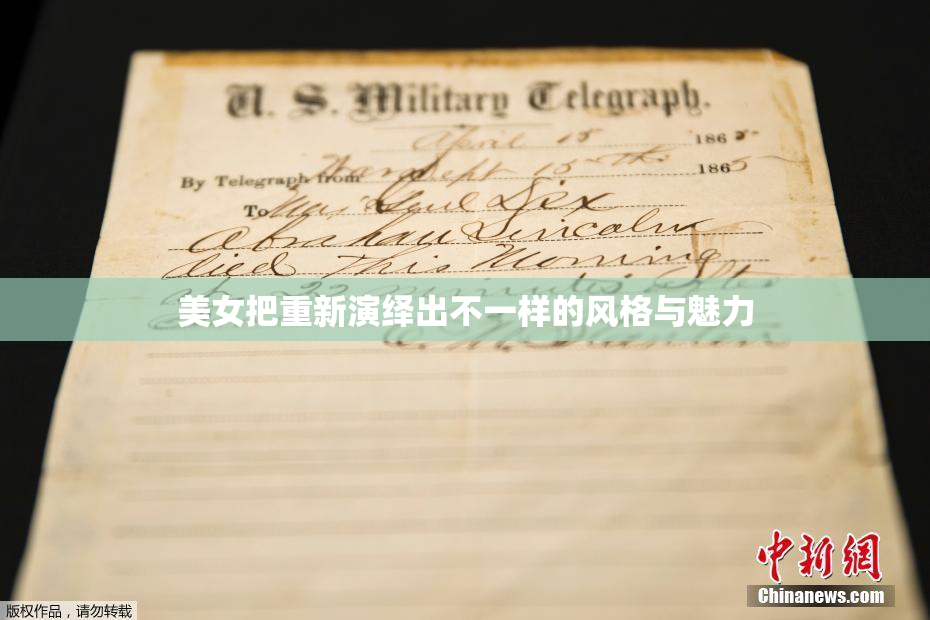 U. S. Military Telegraph.
April 15 1865
By Telegraph from War Dept 15th 1865
To Maj Genl Dix
Abraham Lincoln
died This Morning
at 22 minutes after
美女把重新演绎出不一样的风格与魅力
中新网
Chinanews.com
版权作品，请勿转载